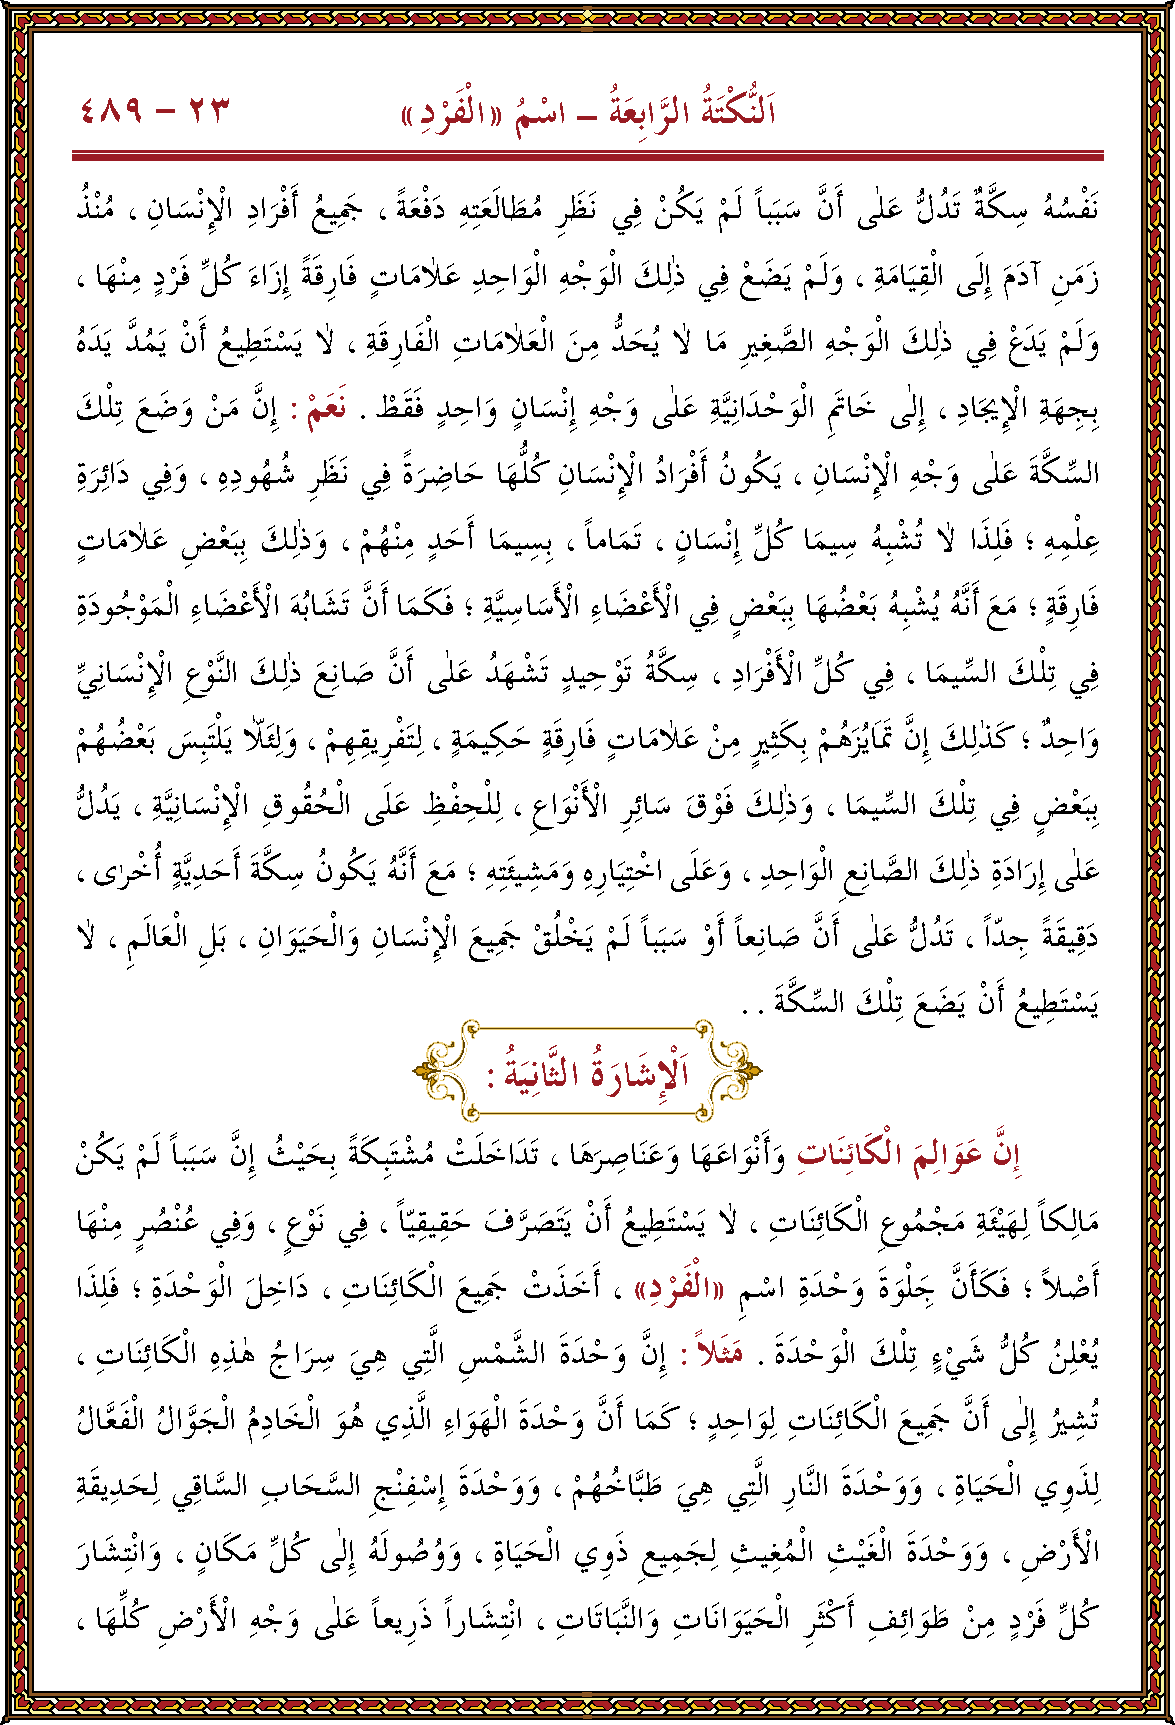 اَلنُّكْتَةُ الرَّابِعَةُ – اسْمُ «الْفَرْدِ» ٢٣ – ٤٨٩
نَفْسُهُ سِكَّةٌ تَدُلُّ عَلٰى أَنَّ سَبَباً لَمْ يَكُنْ فِي نَظَرِ مُطَالَعَتِهِ دَفْعَةً ، جَمِيعُ أَفْرَادِ الْإِنْسَانِ ، مُنْذُ
زَمَنِ آدَمَ إِلَى الْقِيَامَةِ ، وَلَمْ يَضَعْ فِي ذٰلِكَ الْوَجْهِ الْوَاحِدِ عَلاٰمَاتٍ فَارِقَةً إِزَاءَ كُلِّ فَرْدٍ مِنْهَا ،
وَلَمْ يَدَعْ فِي ذٰلِكَ الْوَجْهِ الصَّغِيرِ مَا لاٰ يُحَدُّ مِنَ الْعَلاٰمَاتِ الْفَارِقَةِ ، لاٰ يَسْتَطِيعُ أَنْ يَمُدَّ يَدَهُ
بِجِهَةِ الْإِيجَادِ ، إِلٰى خَاتَمِ الْوَحْدَانِيَّةِ عَلٰى وَجْهِ إِنْسَانٍ وَاحِدٍ فَقَطْ . نَعَمْ : إِنَّ مَنْ وَضَعَ تِلْكَ
السِّكَّةَ عَلٰى وَجْهِ الْإِنْسَانِ ، يَكُونُ أَفْرَادُ الْإِنْسَانِ كُلُّهَا حَاضِرَةً فِي نَظَرِ شُهُودِهِ ، وَفِي دَائِرَةِ
عِلْمِهِ ؛ فَلِذَا لاٰ تُشْبِهُ سِيمَا كُلِّ إِنْسَانٍ ، تَمَاماً ، بِسِيمَا أَحَدٍ مِنْهُمْ ، وَذٰلِكَ بِبَعْضِ عَلاٰمَاتٍ
فَارِقَةٍ ؛ مَعَ أَنَّهُ يُشْبِهُ بَعْضُهَا بِبَعْضٍ فِي الْأَعْضَاءِ الْأَسَاسِيَّةِ ؛ فَكَمَا أَنَّ تَشَابُهَ الْأَعْضَاءِ الْمَوْجُودَةِ
فِي تِلْكَ السِّيمَا ، فِي كُلِّ الْأَفْرَادِ ، سِكَّةُ تَوْحِيدٍ تَشْهَدُ عَلٰى أَنَّ صَانِعَ ذٰلِكَ النَّوْعِ الْإِنْسَانِيِّ
وَاحِدٌ ؛ كَذٰلِكَ إِنَّ تَمَايُزَهُمْ بِكَثِيرٍ مِنْ عَلاٰمَاتٍ فَارِقَةٍ حَكِيمَةٍ ، لِتَفْرِيقِهِمْ ، وَلِئَلاّٰ يَلْتَبِسَ بَعْضُهُمْ
بِبَعْضٍ فِي تِلْكَ السِّيمَا ، وَذٰلِكَ فَوْقَ سَائِرِ الْأَنْوَاعِ ، لِلْحِفْظِ عَلَى الْحُقُوقِ الْإِنْسَانِيَّةِ ، يَدُلُّ
عَلٰى إِرَادَةِ ذٰلِكَ الصَّانِعِ الْوَاحِدِ ، وَعَلَى اخْتِيَارِهِ وَمَشِيئَتِهِ ؛ مَعَ أَنَّهُ يَكُونُ سِكَّةَ أَحَدِيَّةٍ أُخْرٰى ،
دَقِيقَةً جِدّاً ، تَدُلُّ عَلٰى أَنَّ صَانِعاً أَوْ سَبَباً لَمْ يَخْلُقْ جَمِيعَ الْإِنْسَانِ وَالْحَيَوَانِ ، بَلِ الْعَالَمِ ، لاٰ
يَسْتَطِيعُ أَنْ يَضَعَ تِلْكَ السِّكَّةَ . .
اَلْإِشَارَةُ الثَّانِيَةُ :
إِنَّ عَوَالِمَ الْكَائِنَاتِ وَأَنْوَاعَهَا وَعَنَاصِرَهَا ، تَدَاخَلَتْ مُشْتَبِكَةً بِحَيْثُ إِنَّ سَبَباً لَمْ يَكُنْ
مَالِكاً لِهَيْئَةِ مَجْمُوعِ الْكَائِنَاتِ ، لاٰ يَسْتَطِيعُ أَنْ يَتَصَرَّفَ حَقِيقِيّاً ، فِي نَوْعٍ ، وَفِي عُنْصُرٍ مِنْهَا
أَصْلاً ؛ فَكَأَنَّ جِلْوَةَ وَحْدَةِ اسْمِ «الْفَرْدِ» ، أَخَذَتْ جَمِيعَ الْكَائِنَاتِ ، دَاخِلَ الْوَحْدَةِ ؛ فَلِذَا
يُعْلِنُ كُلُّ شَيْءٍ تِلْكَ الْوَحْدَةَ . مَثَلاً : إِنَّ وَحْدَةَ الشَّمْسِ الَّتِي هِيَ سِرَاجُ هٰذِهِ الْكَائِنَاتِ ،
تُشِيرُ إِلٰى أَنَّ جَمِيعَ الْكَائِنَاتِ لِوَاحِدٍ ؛ كَمَا أَنَّ وَحْدَةَ الْهَوَاءِ الَّذِي هُوَ الْخَادِمُ الْجَوَّالُ الْفَعَّالُ
لِذَوِي الْحَيَاةِ ، وَوَحْدَةَ النَّارِ الَّتِي هِيَ طَبَّاخُهُمْ ، وَوَحْدَةَ إِسْفِنْجِ السَّحَابِ السَّاقِي لِحَدِيقَةِ
الْأَرْضِ ، وَوَحْدَةَ الْغَيْثِ الْمُغِيثِ لِجَمِيعِ ذَوِي الْحَيَاةِ ، وَوُصُولَهُ إِلٰى كُلِّ مَكَانٍ ، وَانْتِشَارَ
كُلِّ فَرْدٍ مِنْ طَوَائِفِ أَكْثَرِ الْحَيَوَانَاتِ وَالنَّبَاتَاتِ ، انْتِشَاراً ذَرِيعاً عَلٰى وَجْهِ الْأَرْضِ كُلِّهَا ،